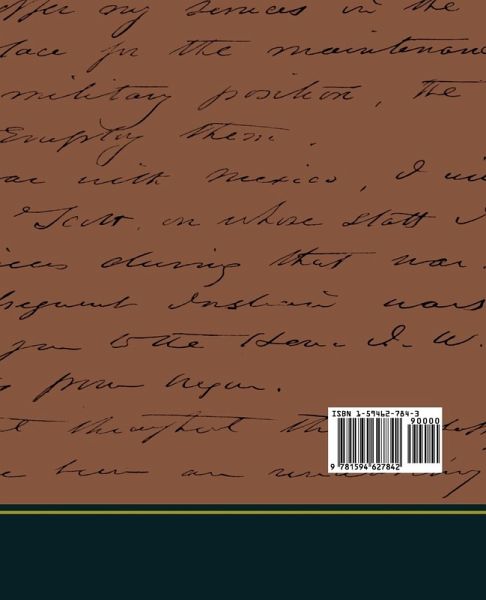 offer my services in the
place for the maintenan
military position, the
Employ them.
war with Mexico, I
Scott, on whose staff I
during that war.
Indian wars
you to the Hon. J. W.
from
throughout the
been an
ISBN 1-59462-784-3
90000
9 781594 627842